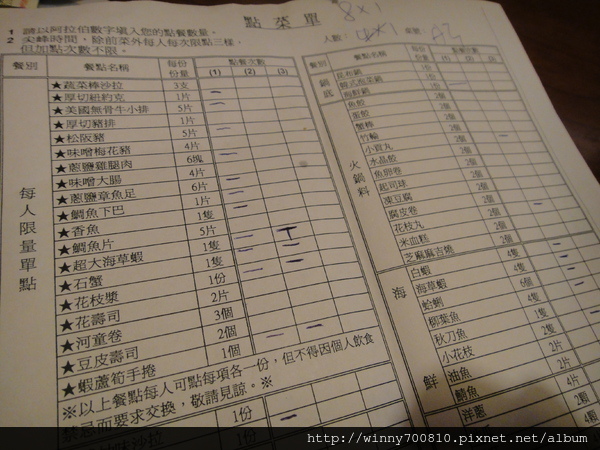 點菜單
8x1
1 請以阿拉伯數字填入您的點餐數量。
2 尖峰時間，除前菜外每人每次限點三樣，
但加點次數不限。
人數： 桌號： A2
餐別 餐點名稱 每份份量 點餐次數
(1) (2) (3)
每人限量單點
★蔬菜棒沙拉 3支
★厚切紐約克 1片
★美國無骨牛小排 5片
★厚切豬排 1片
★松阪豬 5片
★味噌梅花豬 4片
★蔥鹽雞腿肉 6塊
★味噌大腸 4片
★蔥鹽章魚足 6片
★鯛魚下巴 1片
★香魚 1隻
★鯛魚片 5片
★超大海草蝦 1隻
★石蟹 1隻
★花枝漿 1份
★花壽司 2片
★河童卷 3個
★豆皮壽司 2個
★蝦蘆筍手捲 1個
※以上餐點每人可點每項各一份，但不得因個人飲食
禁忌而要求交換，敬請見諒。※
沙拉 1份
1份
餐別 餐點名稱 每份份量 點餐次數
鍋底
昆布鍋
韓式泡菜鍋
海鮮鍋
火鍋料
魚餃
蛋餃
蟹棒
竹輪
小貢丸
水晶餃
魚卵卷
起司球 2個
凍豆腐 2個
腐皮卷 2個
花枝丸 2個
米血糕 2個
芝麻麻吉燒 2個
海鮮
白蝦 4隻
海草蝦
蛤蜊 6個
柳葉魚
秋刀魚
小花枝
油魚 2片
鯖魚
洋蔥
http://winny700810.pixnet.net/album